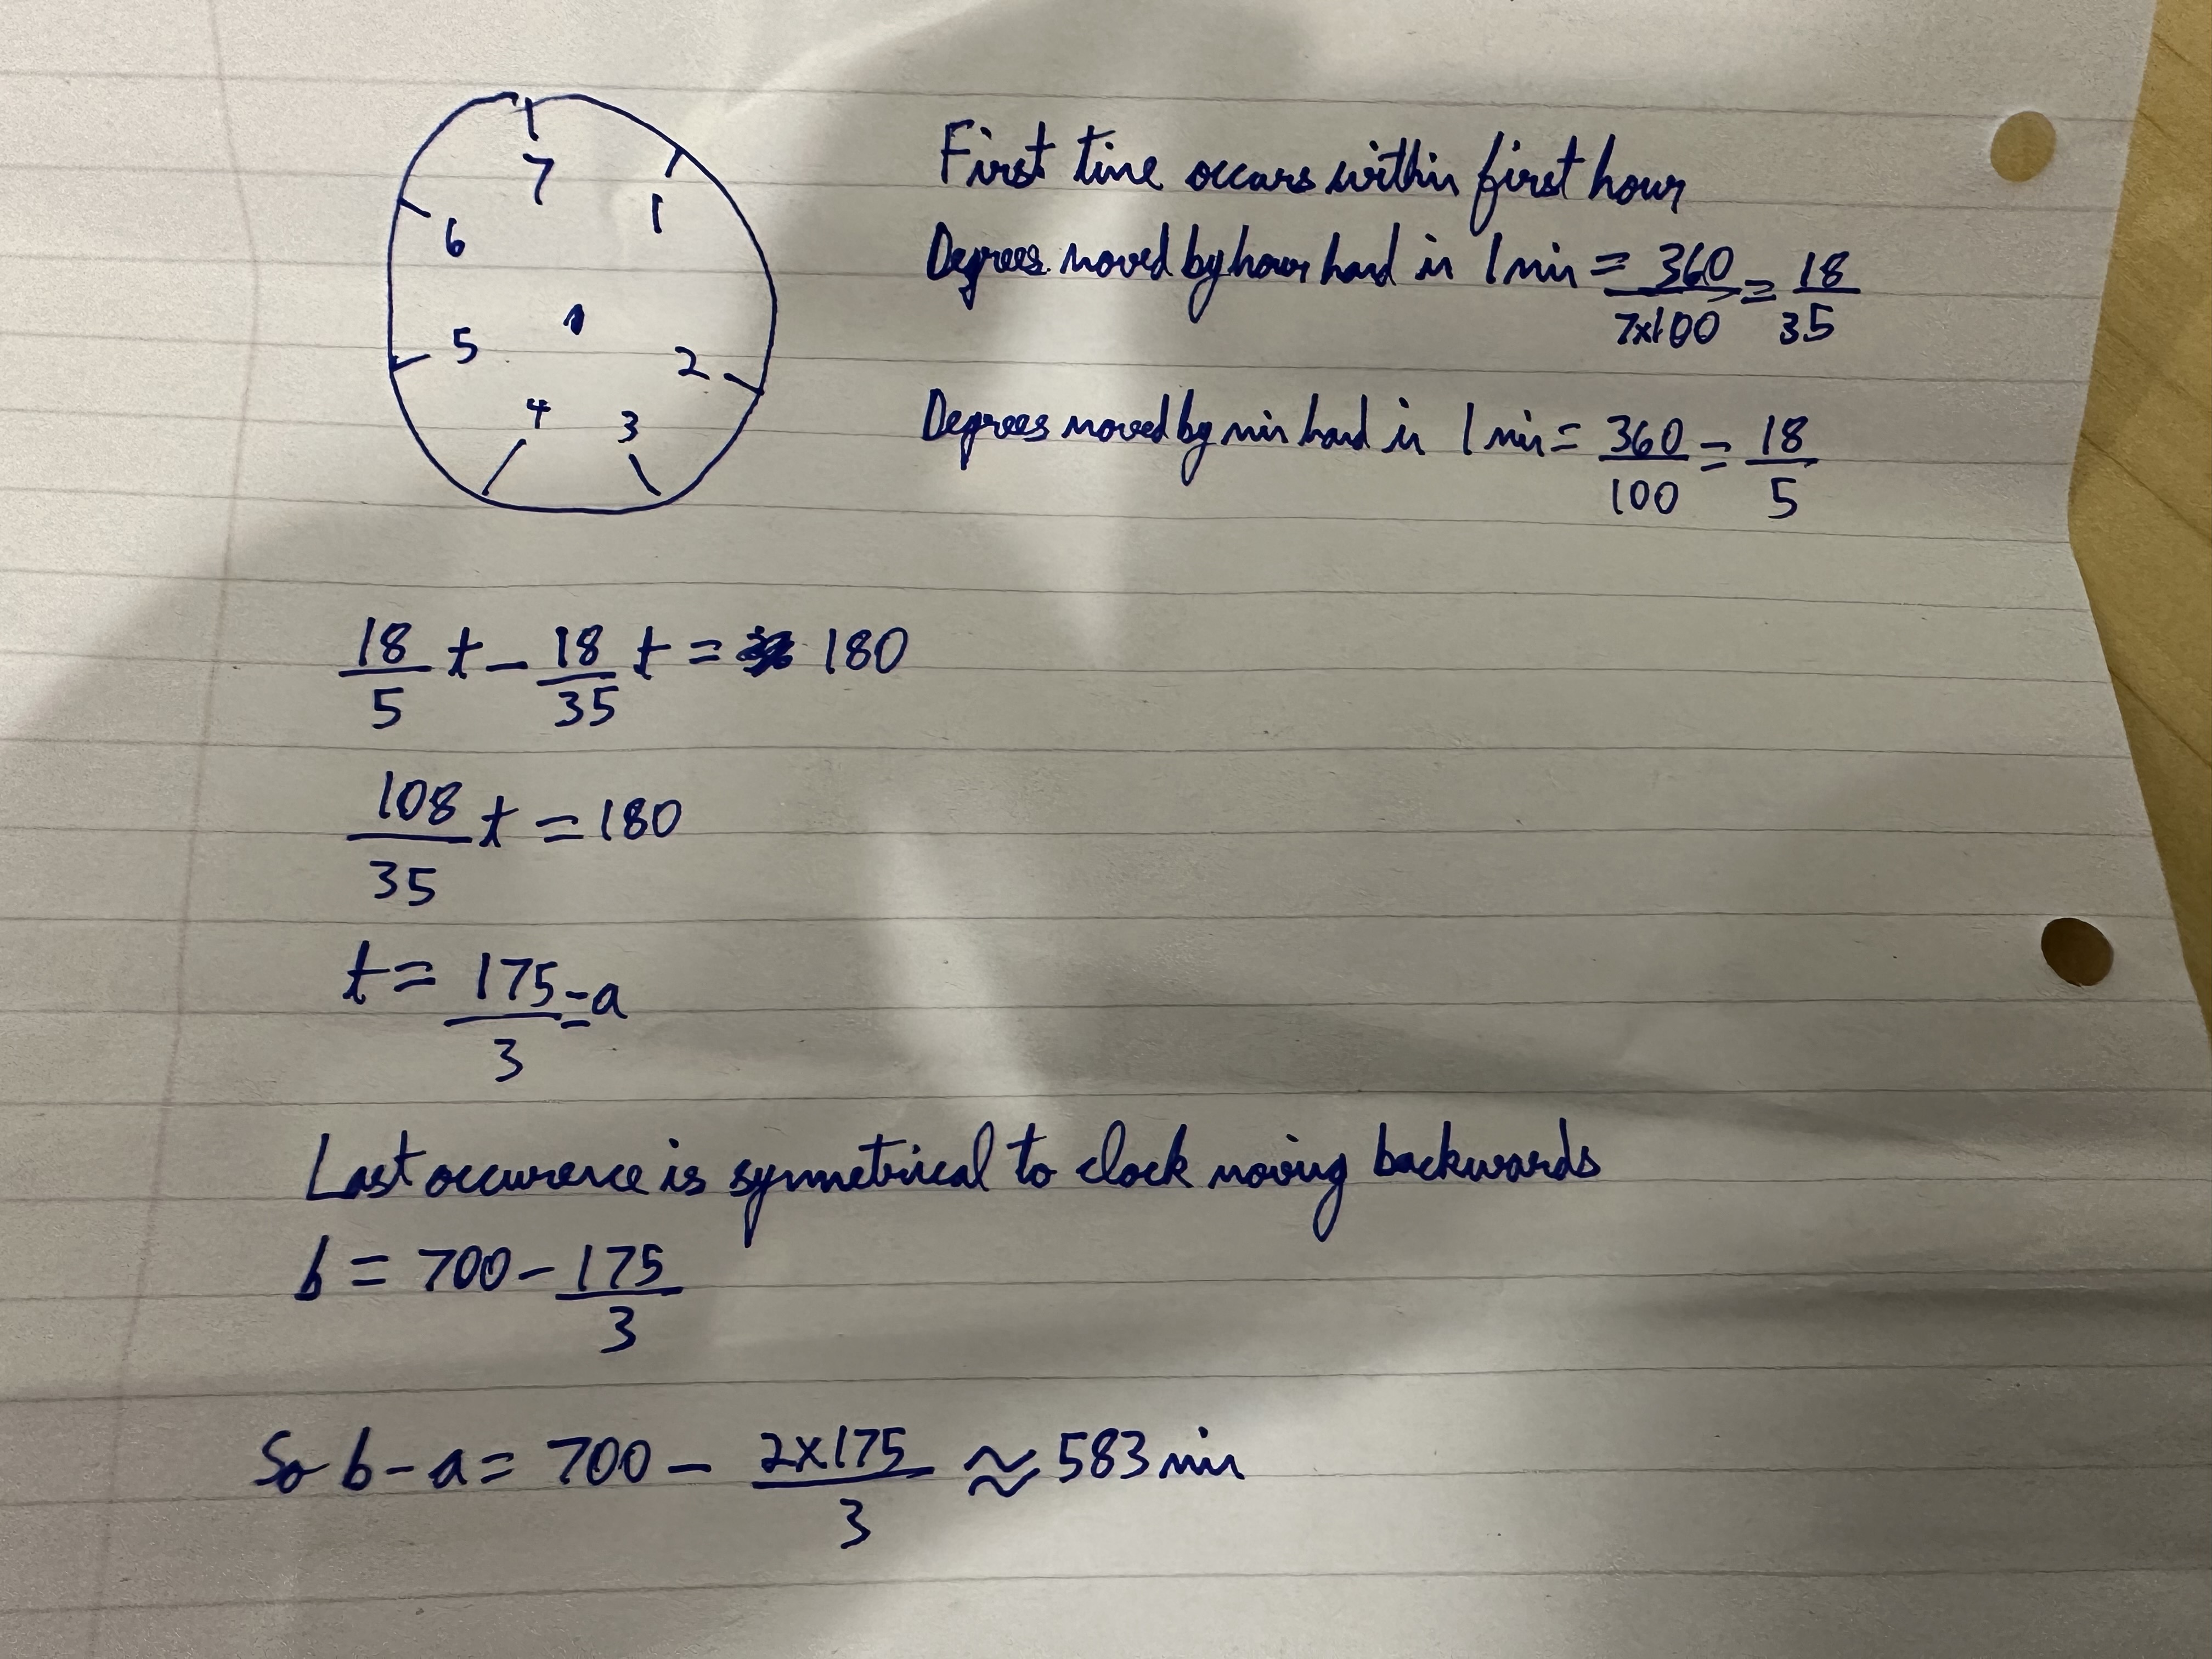 7
1
6
5
2
4
3
First time occurs within first hour
Degrees moved by hour hand in 1 min = 360/7x100 = 18/35
Degrees moved by min hand in 1 min = 360/100 = 18/5
18/5 t - 18/35 t = 180
108/35 t = 180
t = 175/3 = a
Last occurence is symmetrical to clock moving backwards
b = 700 - 175/3
So b - a = 700 - 2x175/3 ≈ 583 min